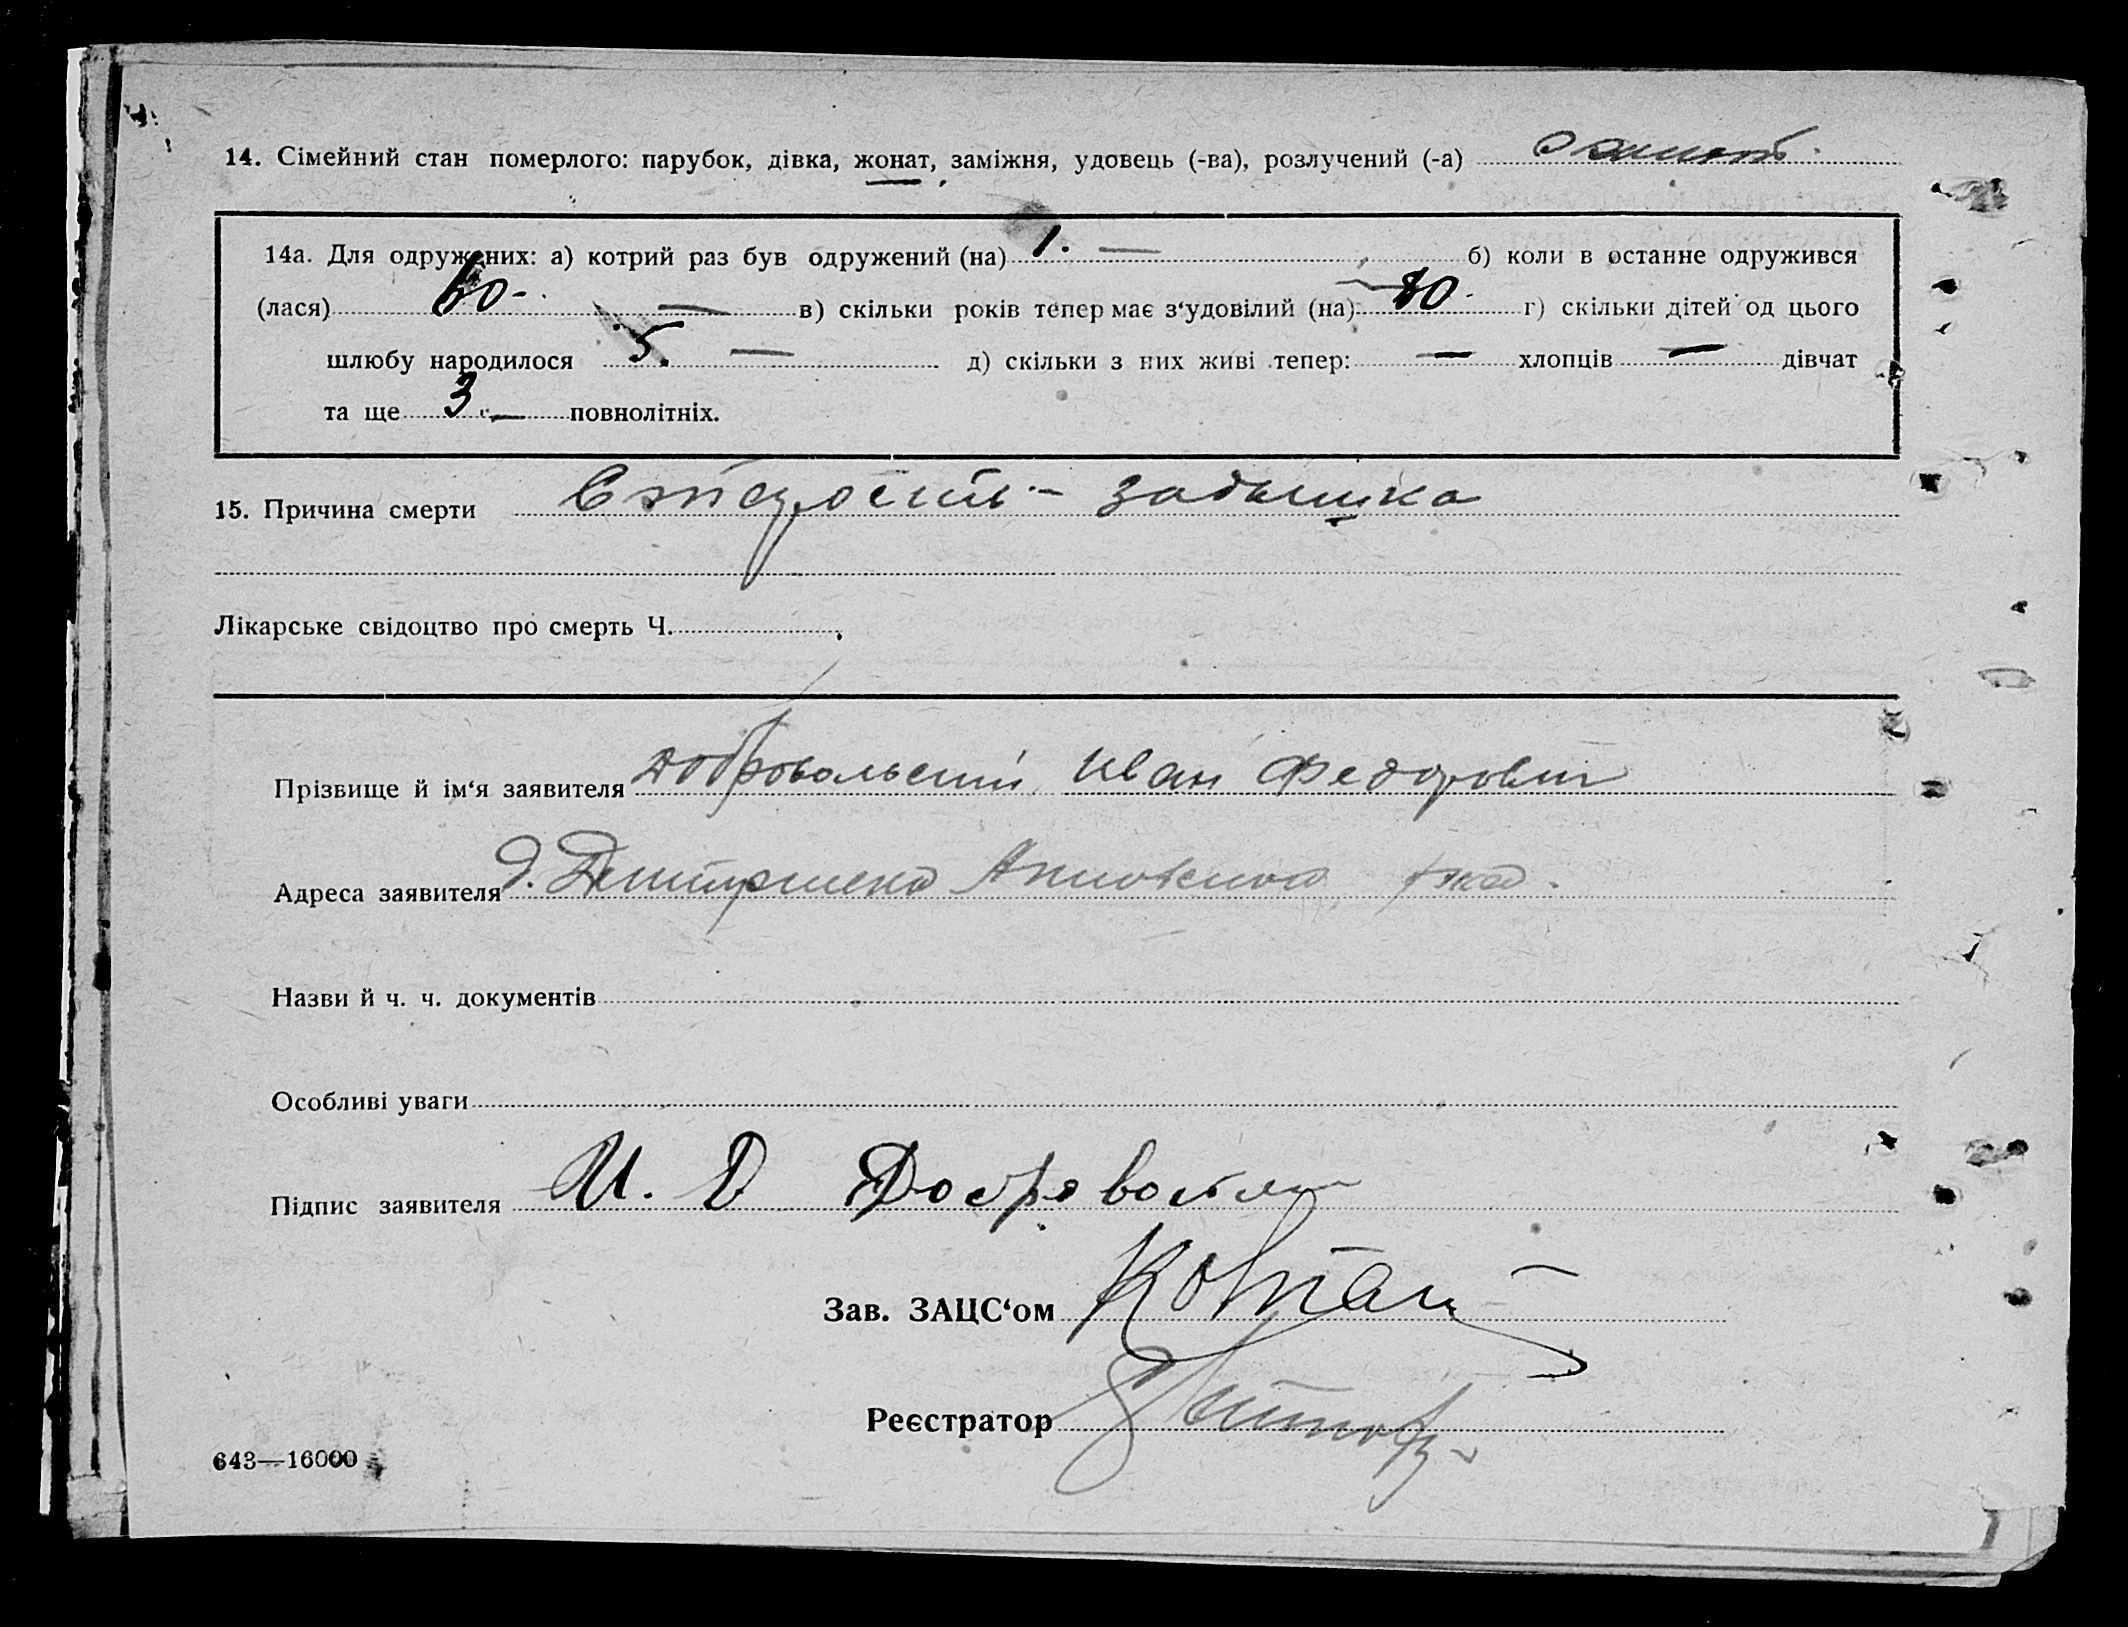 14. Сімейний стан померлого: парубок, дівка, жонат, заміжня, удовець (-ва), розлучений (-а)
14а. Для одружених: а) котрий раз був одружений (на) 1. — б) коли в останне одружився
(лася) 60 - — в) скільки років тепер має з‘удовілий (на) 80 - г) скільки дітей од цього
шлюбу народилося 5. — д) скільки з них живі тепер: — хлопців — дівчат
та ще 3 — повнолітніх.
15. Причина смерти Старость - задышка
Лікарське свідоцтво про смерть Ч.
Прізвище й ім‘я заявителя Добровольский Иван Федорович
Адреса заявителя д.
Назви й ч. ч. документів
Особливі уваги
Підпис заявителя И.
Зав. ЗАЦС‘ом
Реєстратор
643—16000